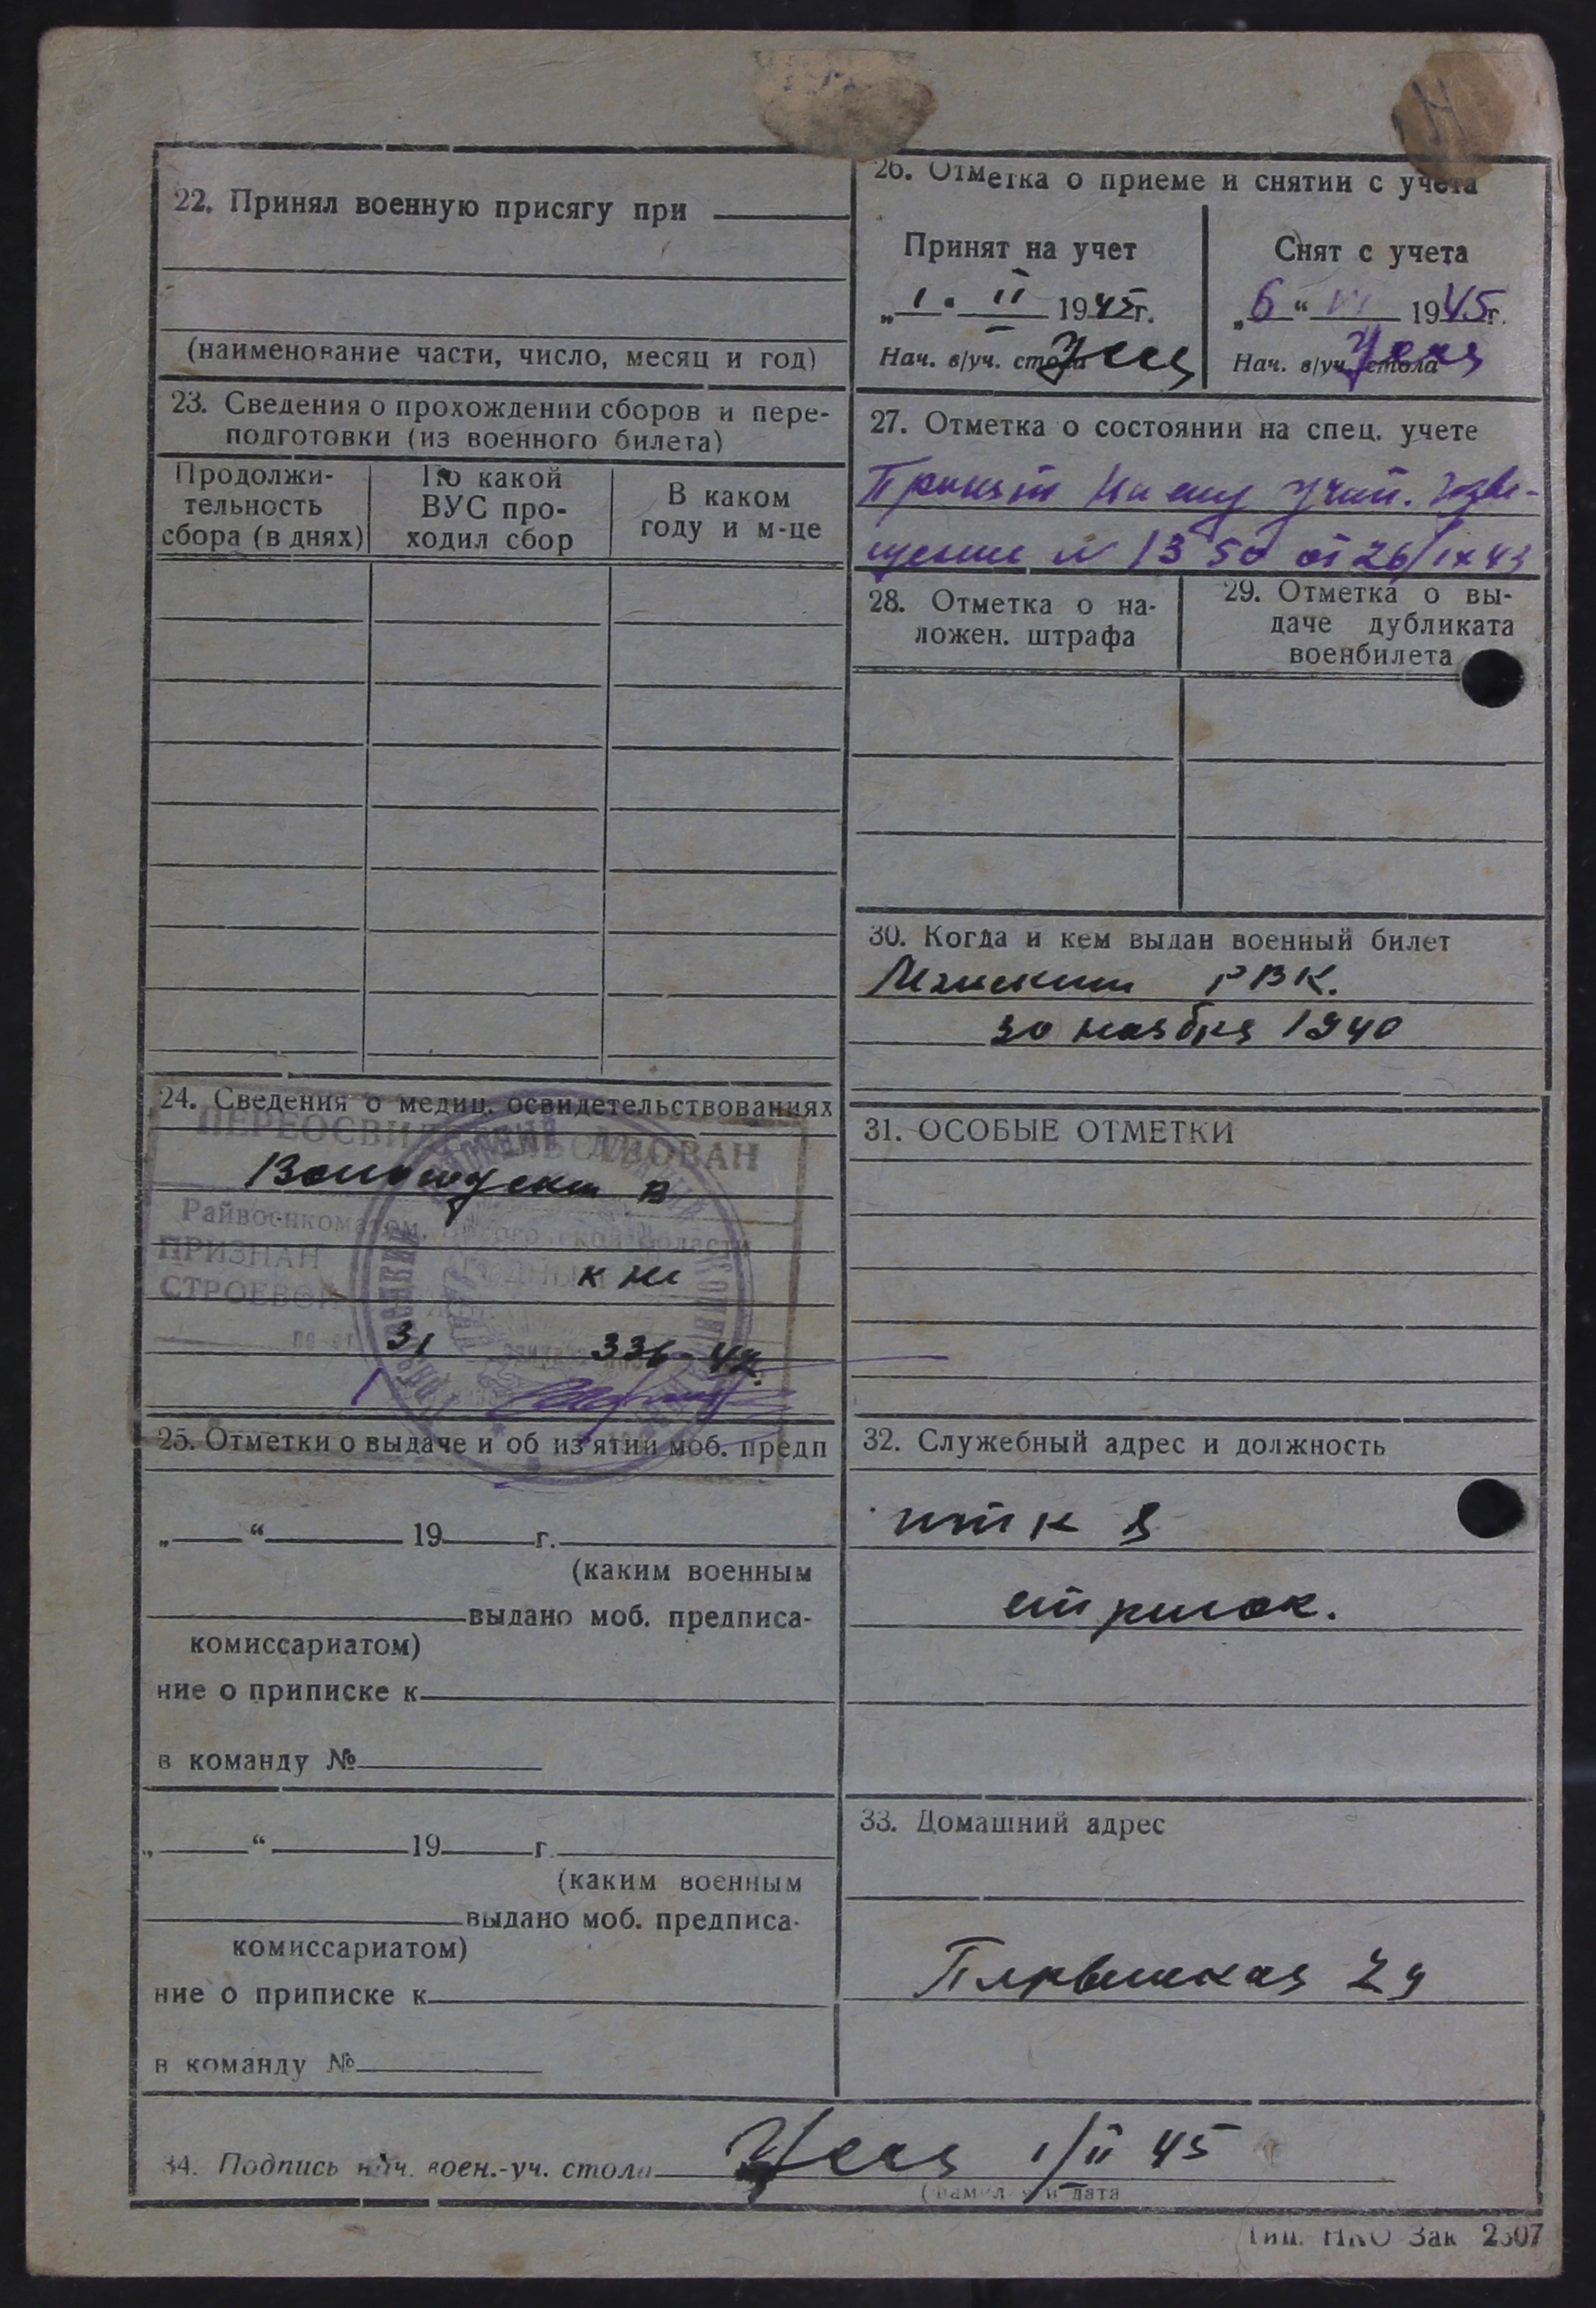 22. Принял военную присягу при
(наименование части, число, месяц и год)
23. Сведения о прохождении сборов и пере-
подготовки (из военного билета)
Продолжи-
тельность
сбора (в днях)
По какой
ВУС про-
ходил сбор
В каком
году и м-це
24. Сведения о медиц. освидетельствованиях
Райвоенкоматом
ПРИЗНАН
к
31 336-42.
25. Отметки о выдаче и об из'ятии моб. предп
„ “ 19 г.
(каким военным
выдано моб. предписа-
комиссариатом)
ние о приписке к
в команду №
„ “ 19 г.
(каким военным
выдано моб. предписа-
комиссариатом)
ние о приписке к
в команду №
26. Отметка о приеме и снятии с учета
Принят на учет
„1“ II 1945г.
Нач. в/уч. стола
Снят с учета
„6“ VI 1945г.
Нач. в/уч. стола
27. Отметка о состоянии на спец. учете
Принят на спец учет. Изве-
щение N 1350 от 26/IX 43
28. Отметка о на-
ложен. штрафа
29. Отметка о вы-
даче дубликата
военбилета
30. Когда и кем выдан военный билет
РВК.
30 ноября 1940
31. ОСОБЫЕ ОТМЕТКИ
32. Служебный адрес и должность
стрелок.
33. Домашний адрес
34. Подпись нач. воен.-уч. стола 1/II 45
Тип. НКО Зак 2307